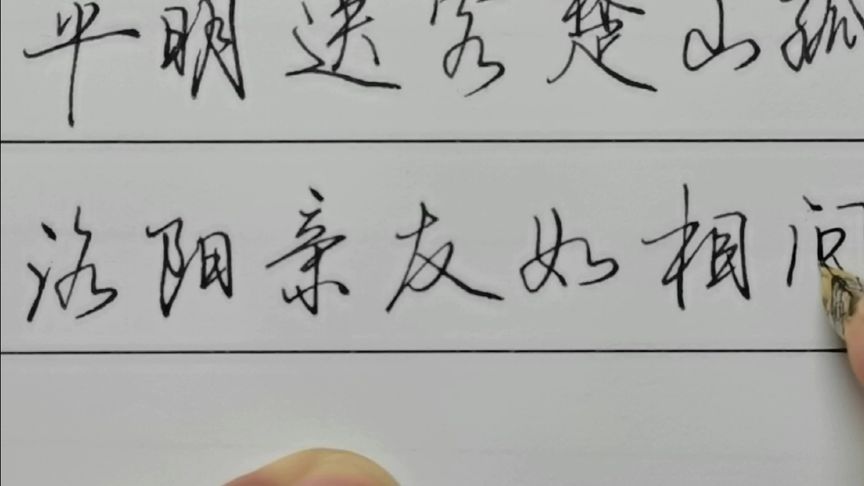 平明送客楚山孤
洛阳亲友如相问